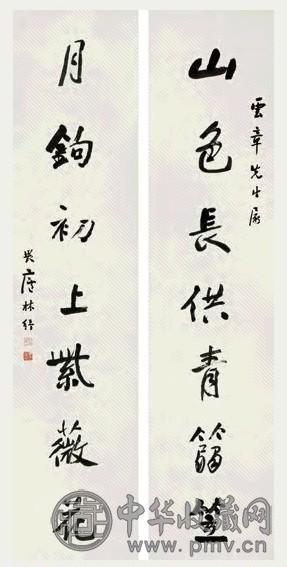 雲章先生屬
山色長供青篛笠
月鉤初上紫薇花
畏廬林紓
中华收藏网
www.pmv.cn